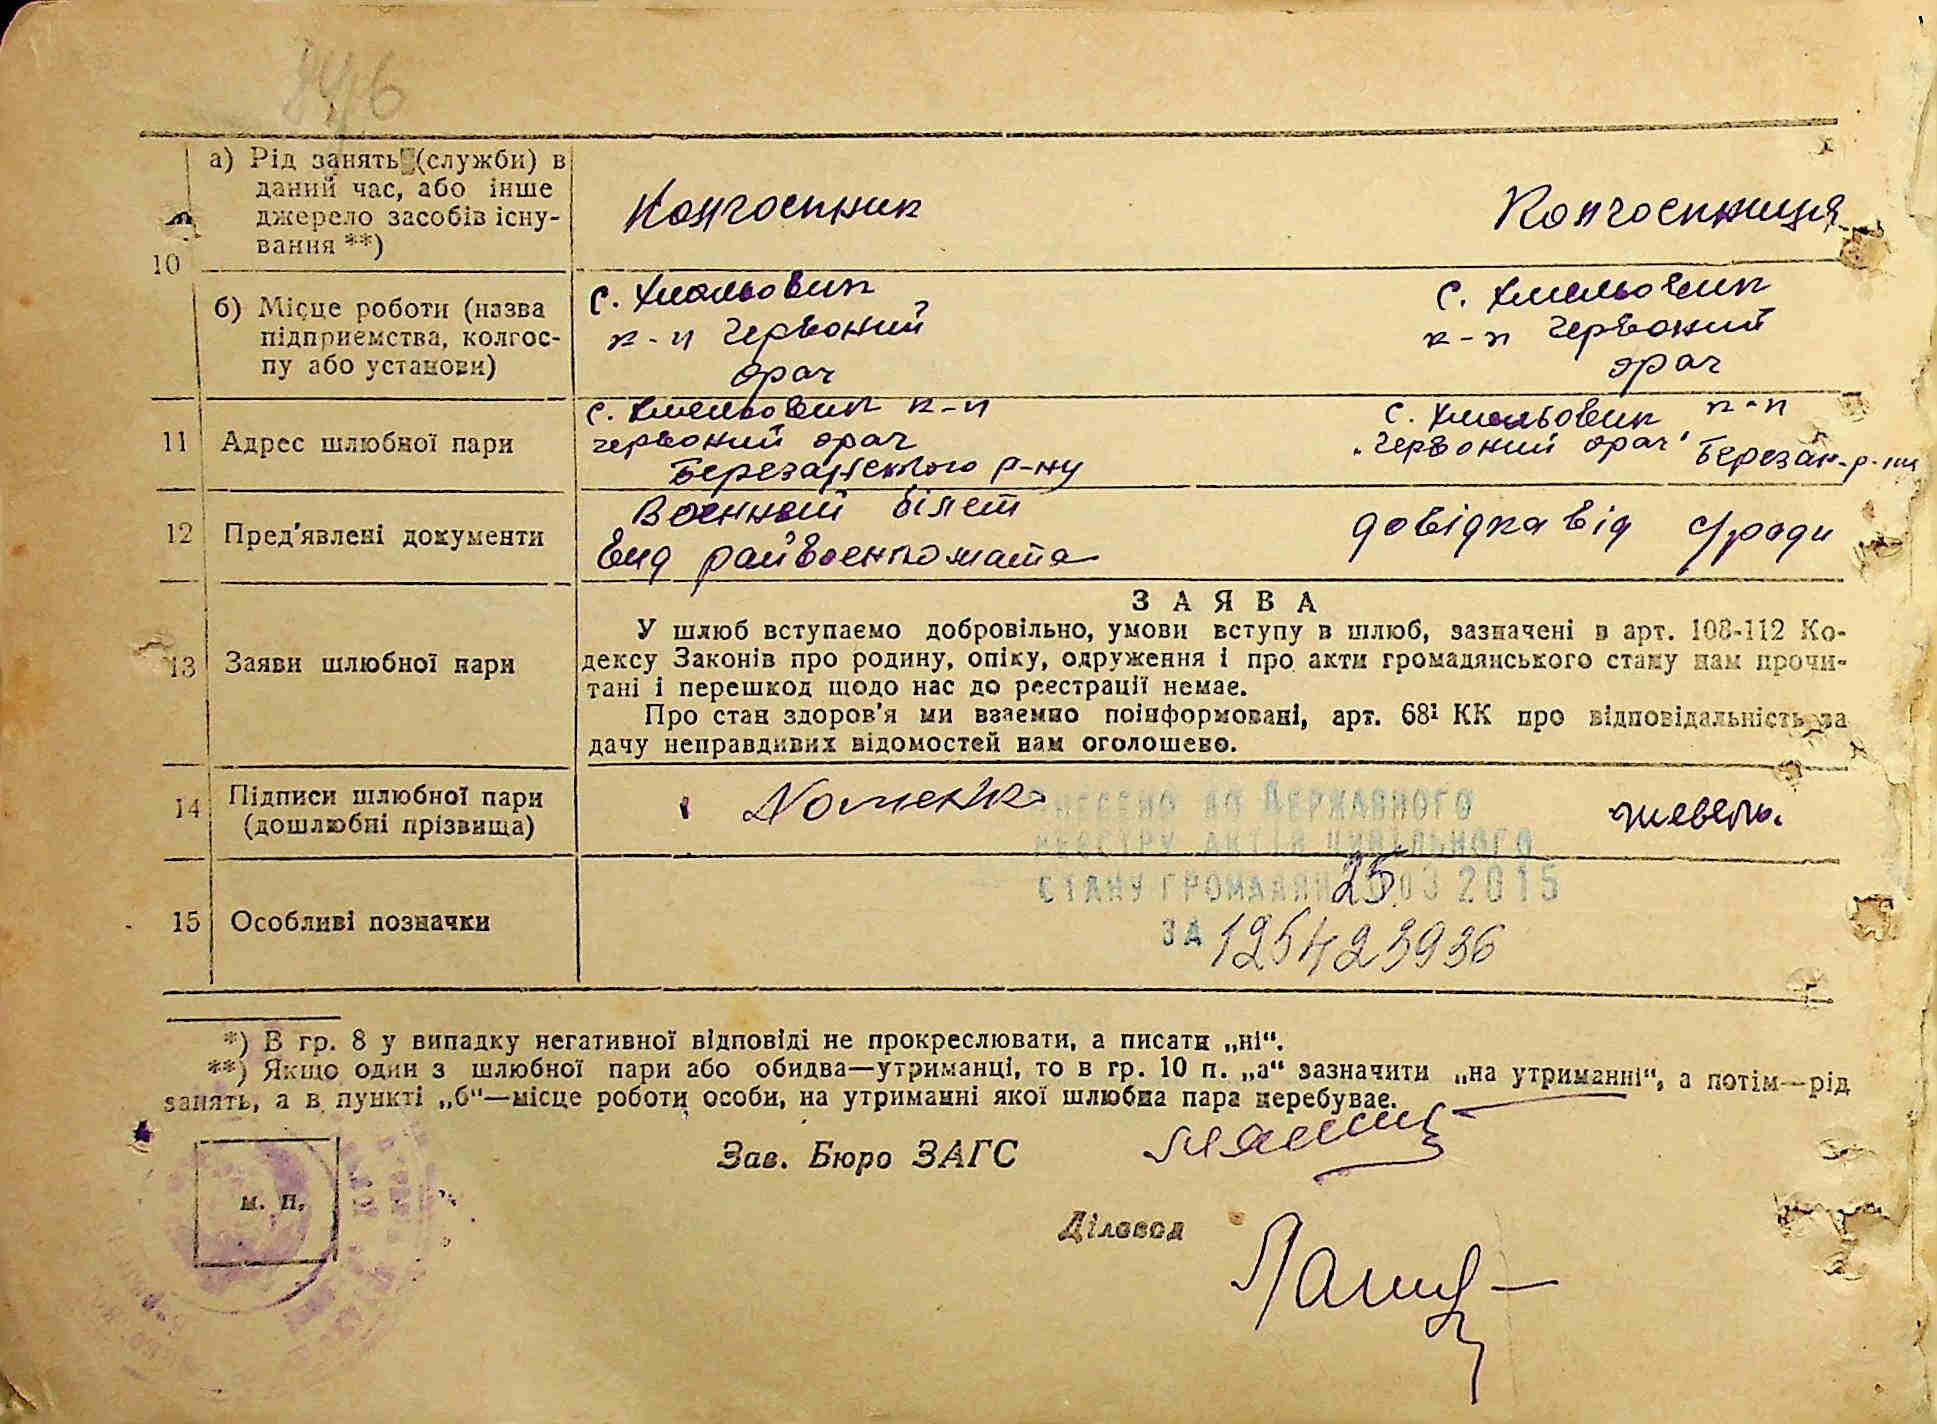 а) Рід занять (служби) в
даний час, або інше
джерело засобів існу-
вання **)
Колгоспник
Колгоспниця
10
б) Місце роботи (назва
підприємства, колгос-
пу або установи)
с. Хмельовик
к-п Червоний
орач
с. Хмельовик
к-п Червоний
орач
11
Адрес шлюбної пари
с. Хмельовик к-п
червоний орач
Березанського р-ну
с. Хмельовик к-п
"Червоний орач" Березан-р-ну
12
Пред'явлені документи
Военный білет
вид райвоенкомата
довідка від с/ради
13
Заяви шлюбної пари
ЗАЯВА
У шлюб вступаємо добровільно, умови вступу в шлюб, зазначені в арт. 108-112 Ко-
дексу Законів про родину, опіку, одруження і про акти громадянського стану нам прочи-
тані і перешкод щодо нас до реєстрації немає.
Про стан здоров'я ми взаємно поінформовані, арт. 68¹ КК про відповідальність за
дачу неправдивих відомостей нам оголошено.
14
Підписи шлюбної пари
(дошлюбні прізвища)
Шевель.
ВНЕСЕНО ДО ДЕРЖАВНОГО
РЕЄСТРУ АКТІВ ЦИВІЛЬНОГО
СТАНУ ГРОМАДЯН 25 03 2015
ЗА 125423936
15
Особливі позначки
*) В гр. 8 у випадку негативної відповіді не прокреслювати, а писати „ні“.
**) Якщо один з шлюбної пари або обидва—утриманці, то в гр. 10 п. „а“ зазначити „на утриманні“, а потім—рід
занять, а в пункті „б“—місце роботи особи, на утриманні якої шлюбна пара перебуває.
Зав. Бюро ЗАГС
м. п.
Діловод